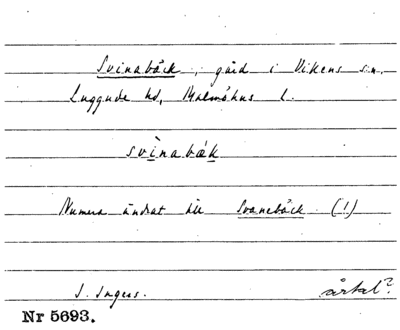 Svinabäck, gård i Vikens sn.
Luggude hd, Malmöhus l.
svìnabæk
Numera ändrat till Svanebäck (!)
I. Ingers. årtal?
Nr 5693.